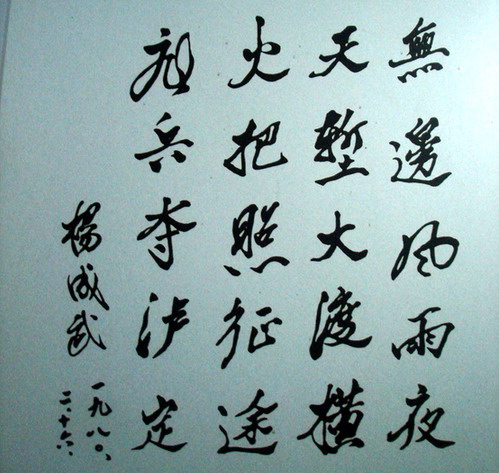 無邊風雨夜
天塹大渡橫
火把照征途
飛兵夺泸定
楊成武
一九八〇、
二、十六